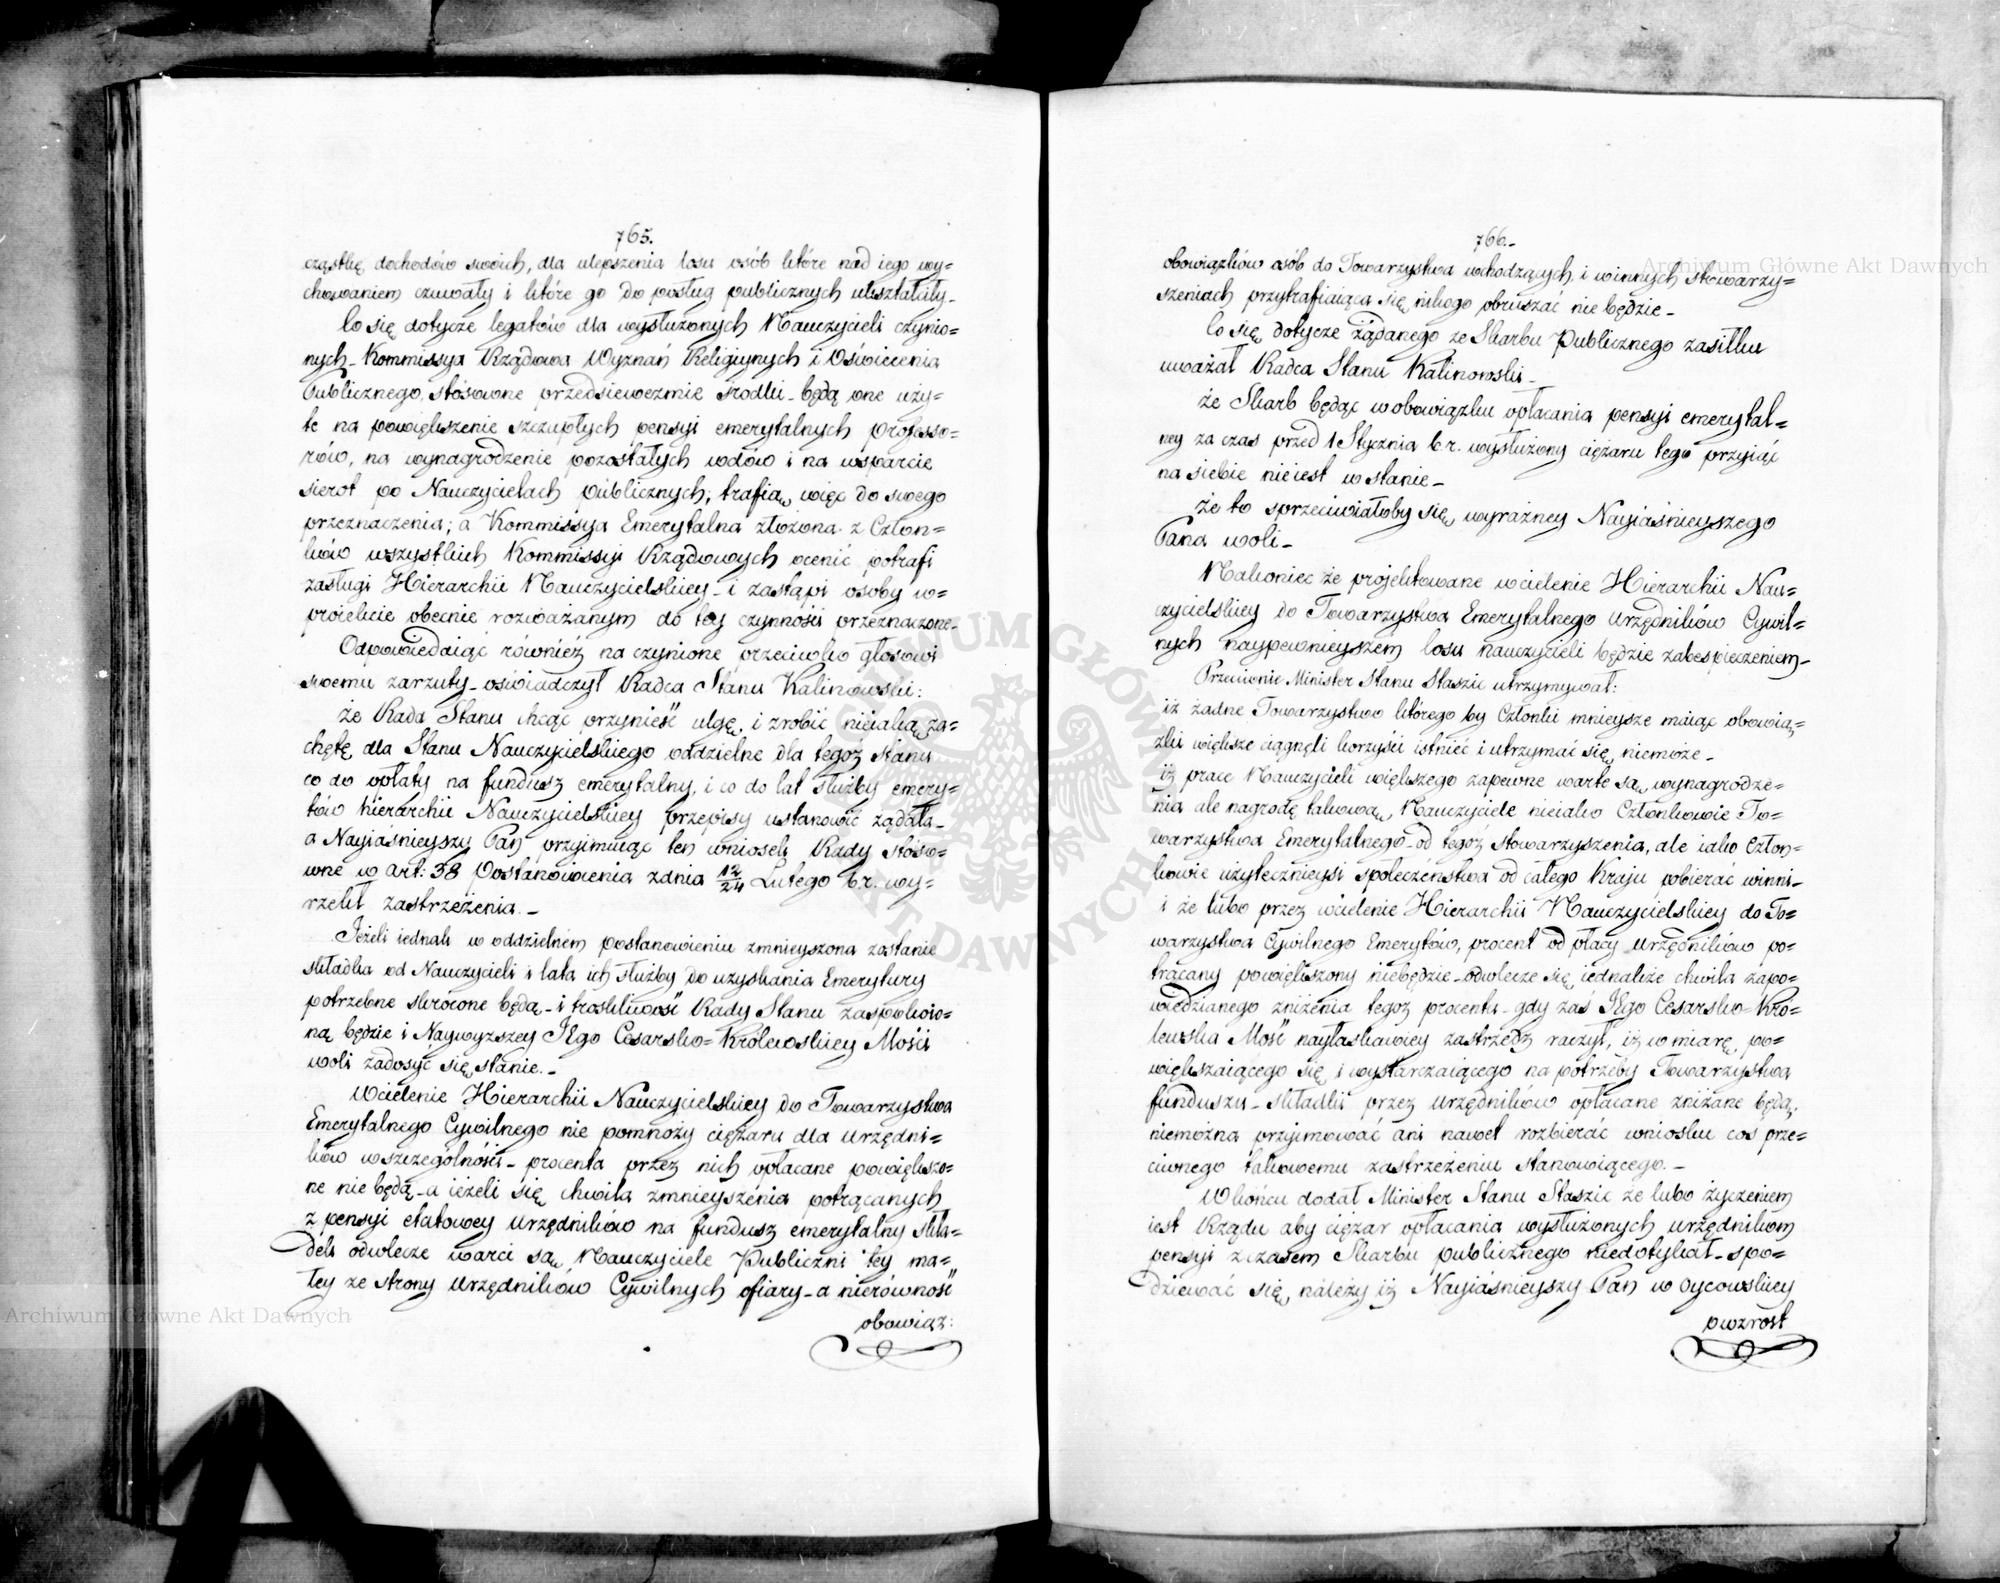 765.
cząstkę dochodów swoich, dla ulepszenia losu osób które nad iego wy=
chowaniem czuwały i które go do posług publicznych ukształciły_
Co się dotycze legatów dla wysłużonych Nauczycieli czynio=
nych_ Kommissya Rządowa Wyznań Religiynych i Oświecenia
Publicznego, stósowne przedsiewezmie srodki_ będą one uży=
te na powiększenie szczupłych pensyi emerytalnych Professo=
rów, na wynagrodzenie pozostałych wdów i na wsparcie
sierot po Nauczycielach publicznych, trafią więc do swego
przeznaczenia; a Kommissya Emerytalna złożona z Człon=
ków wszystkich Kommissyi Rządowych ocenić potrafi
zasługi Hierarchii Nauczycielskiey_ i zastąpi osoby w=
proiekcie obecnie rozważanym do tey czynności przeznaczone_
Odpowiedaiąc również na czynione przeciwko głosowi
swemu zarzuty_ oświadczył Radca Stanu Kalinowski:
że Rada Stanu chcąc przynieść ulgę, i zrobić nieiaką za=
chętę dla Stanu Nauczycielskiego oddzielne dla tegoż stanu
co do opłaty na fundusz emerytalny, i co do lat służby emery=
tów hierarchii Nauczycielskiey przepisy ustanowić żądała_
a Nayiaśnieyszy Pan przyimuiąc ten wniosek Rady stóso=
wne w art: 38 Postanowienia zdnia 12/24 Lutego b.r. wy=
rzekł zastrzeżenia._
Jeżeli iednak w oddzielnem postanowieniu zmnieyszona zostanie
składka od Nauczycieli i lata ich służby do uzyskania Emerytury
potrzebne skrócone będą_ i troskliwość Rady Stanu zaspokoio=
ną będzie i Naywyższey JEgo Cesarsko=Królewskiey Mości
woli zadosyć się stanie._
Wcielenie Hierarchii Nauczycielskiey do Towarzystwa
Emerytalnego Cywilnego nie pomnoży ciężaru dla urzędni=
ków wszczególności_ procenta przez nich opłacane powiększo=
ne nie będą_ a ieżeli się chwila zmnieyszenia potrącanych
z pensyi etatowey urzędników na fundusz emerytalny skła=
dek odwlecze warci są Nauczyciele Publiczni tey ma=
łey ze strony urzędników Cywilnych ofiary_ a nierówność
obowiąz:
766._
obowiązków osób do Towarzystwa wchodzących, i winnych stowarzy=
szeniach przytrafiaiąca się nikogo obruszać nie będzie_
Co się dotycze żądanego ze Skarbu Publicznego zasiłku
uważał Radca Stanu Kalinowski_
że Skarb będąc wobowiązku opłacania pensyi emerytal=
ney za czas przed 1 Stycznia b.r. wysłużony ciężaru tego przyiąć
na siebie nieiest w stanie_
że to sprzeciwiałoby się wyraźney Nayiaśnieyszego
Pana woli_
Nakoniec że projektowane wcielenie Hierarchii Nau=
czycielskiey do Towarzystwa Emerytalnego urzędników Cywil=
nych naypewnieyszem losu nauczycieli będzie zabespieczeniem_
Przeciwnie Minister Stanu Staszic utrzymywał:
iż żadne Towarzystwo którego by Członki mnieysze maiąc obowią=
zki większe ciągnęli korzyści istnieć i utrzymać się niemoże_
iż prace Nauczycieli większego zapewne warte są wynagrodze=
nia ale nagrodę takową, Nauczyciele nieiako Członkowie To=
warzystwa Emerytalnego_ od tegoż stowarzyszenia, ale iako Człon=
kowie użytecznieysi społeczeństwa od całego Kraju pobierać winni_
i że lubo przez wcielenie Hierarchii Nauczycielskiey do To=
warzystwa Cywilnego Emerytów, procent od płacy urzędników po=
trącany powiększony niebędzie_ odwlecze się iednakże chwila zapo=
wiedzianego zniżenia tegoż procentu_ gdy zaś JEgo Cesarsko=Kró=
lewska Mość nayłaskawiey zastrzedz raczył, iż w miarę po=
większaiącego się i wystarczaiącego na potrzeby Towarzystwa
funduszu_ składki przez urzędników opłacane zniżane będą,
niemożna przyimować ani nawet rozbierać wniosku coś prze=
ciwnego takowemu zastrzeżeniu stanowiącego._
Wkońcu dodał Minister Stanu Staszic że lubo życzeniem
iest Rządu aby ciężar opłacania wysłużonych urzędnikom
pensyi z czasem Skarbu publicznego niedotykał_ spo=
dziewać się należy iż Nayiaśnieyszy Pan w oycowskiey
pwzrost
Archiwum Główne Akt Dawnych
Archiwum Główne Akt Dawnych
ARCHIWUM GŁÓWNE AKT DAWNYCH